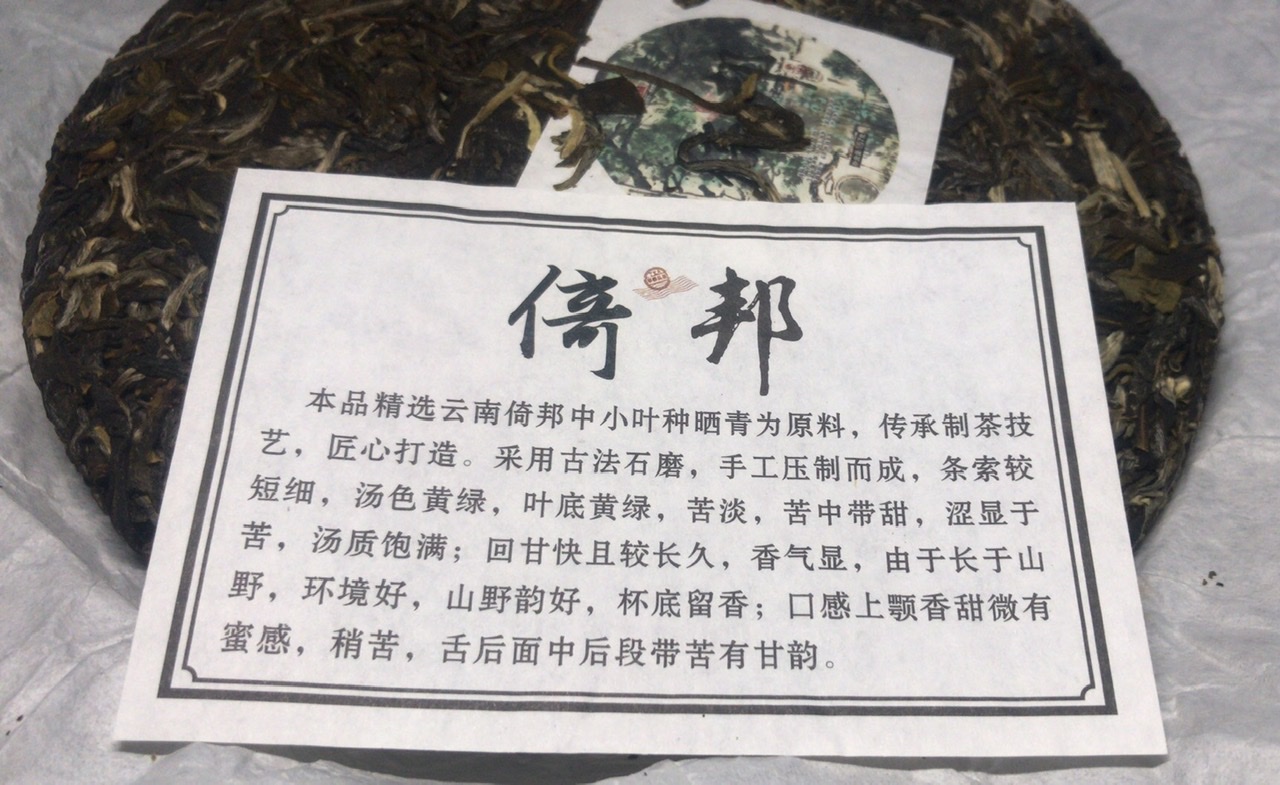 倚邦
本品精选云南倚邦中小叶种晒青为原料，传承制茶技
艺，匠心打造。采用古法石磨，手工压制而成，条索较
短细，汤色黄绿，叶底黄绿，苦淡，苦中带甜，涩显于
苦，汤质饱满；回甘快且较长久，香气显，由于长于山
野，环境好，山野韵好，杯底留香；口感上颚香甜微有
蜜感，稍苦，舌后面中后段带苦有甘韵。